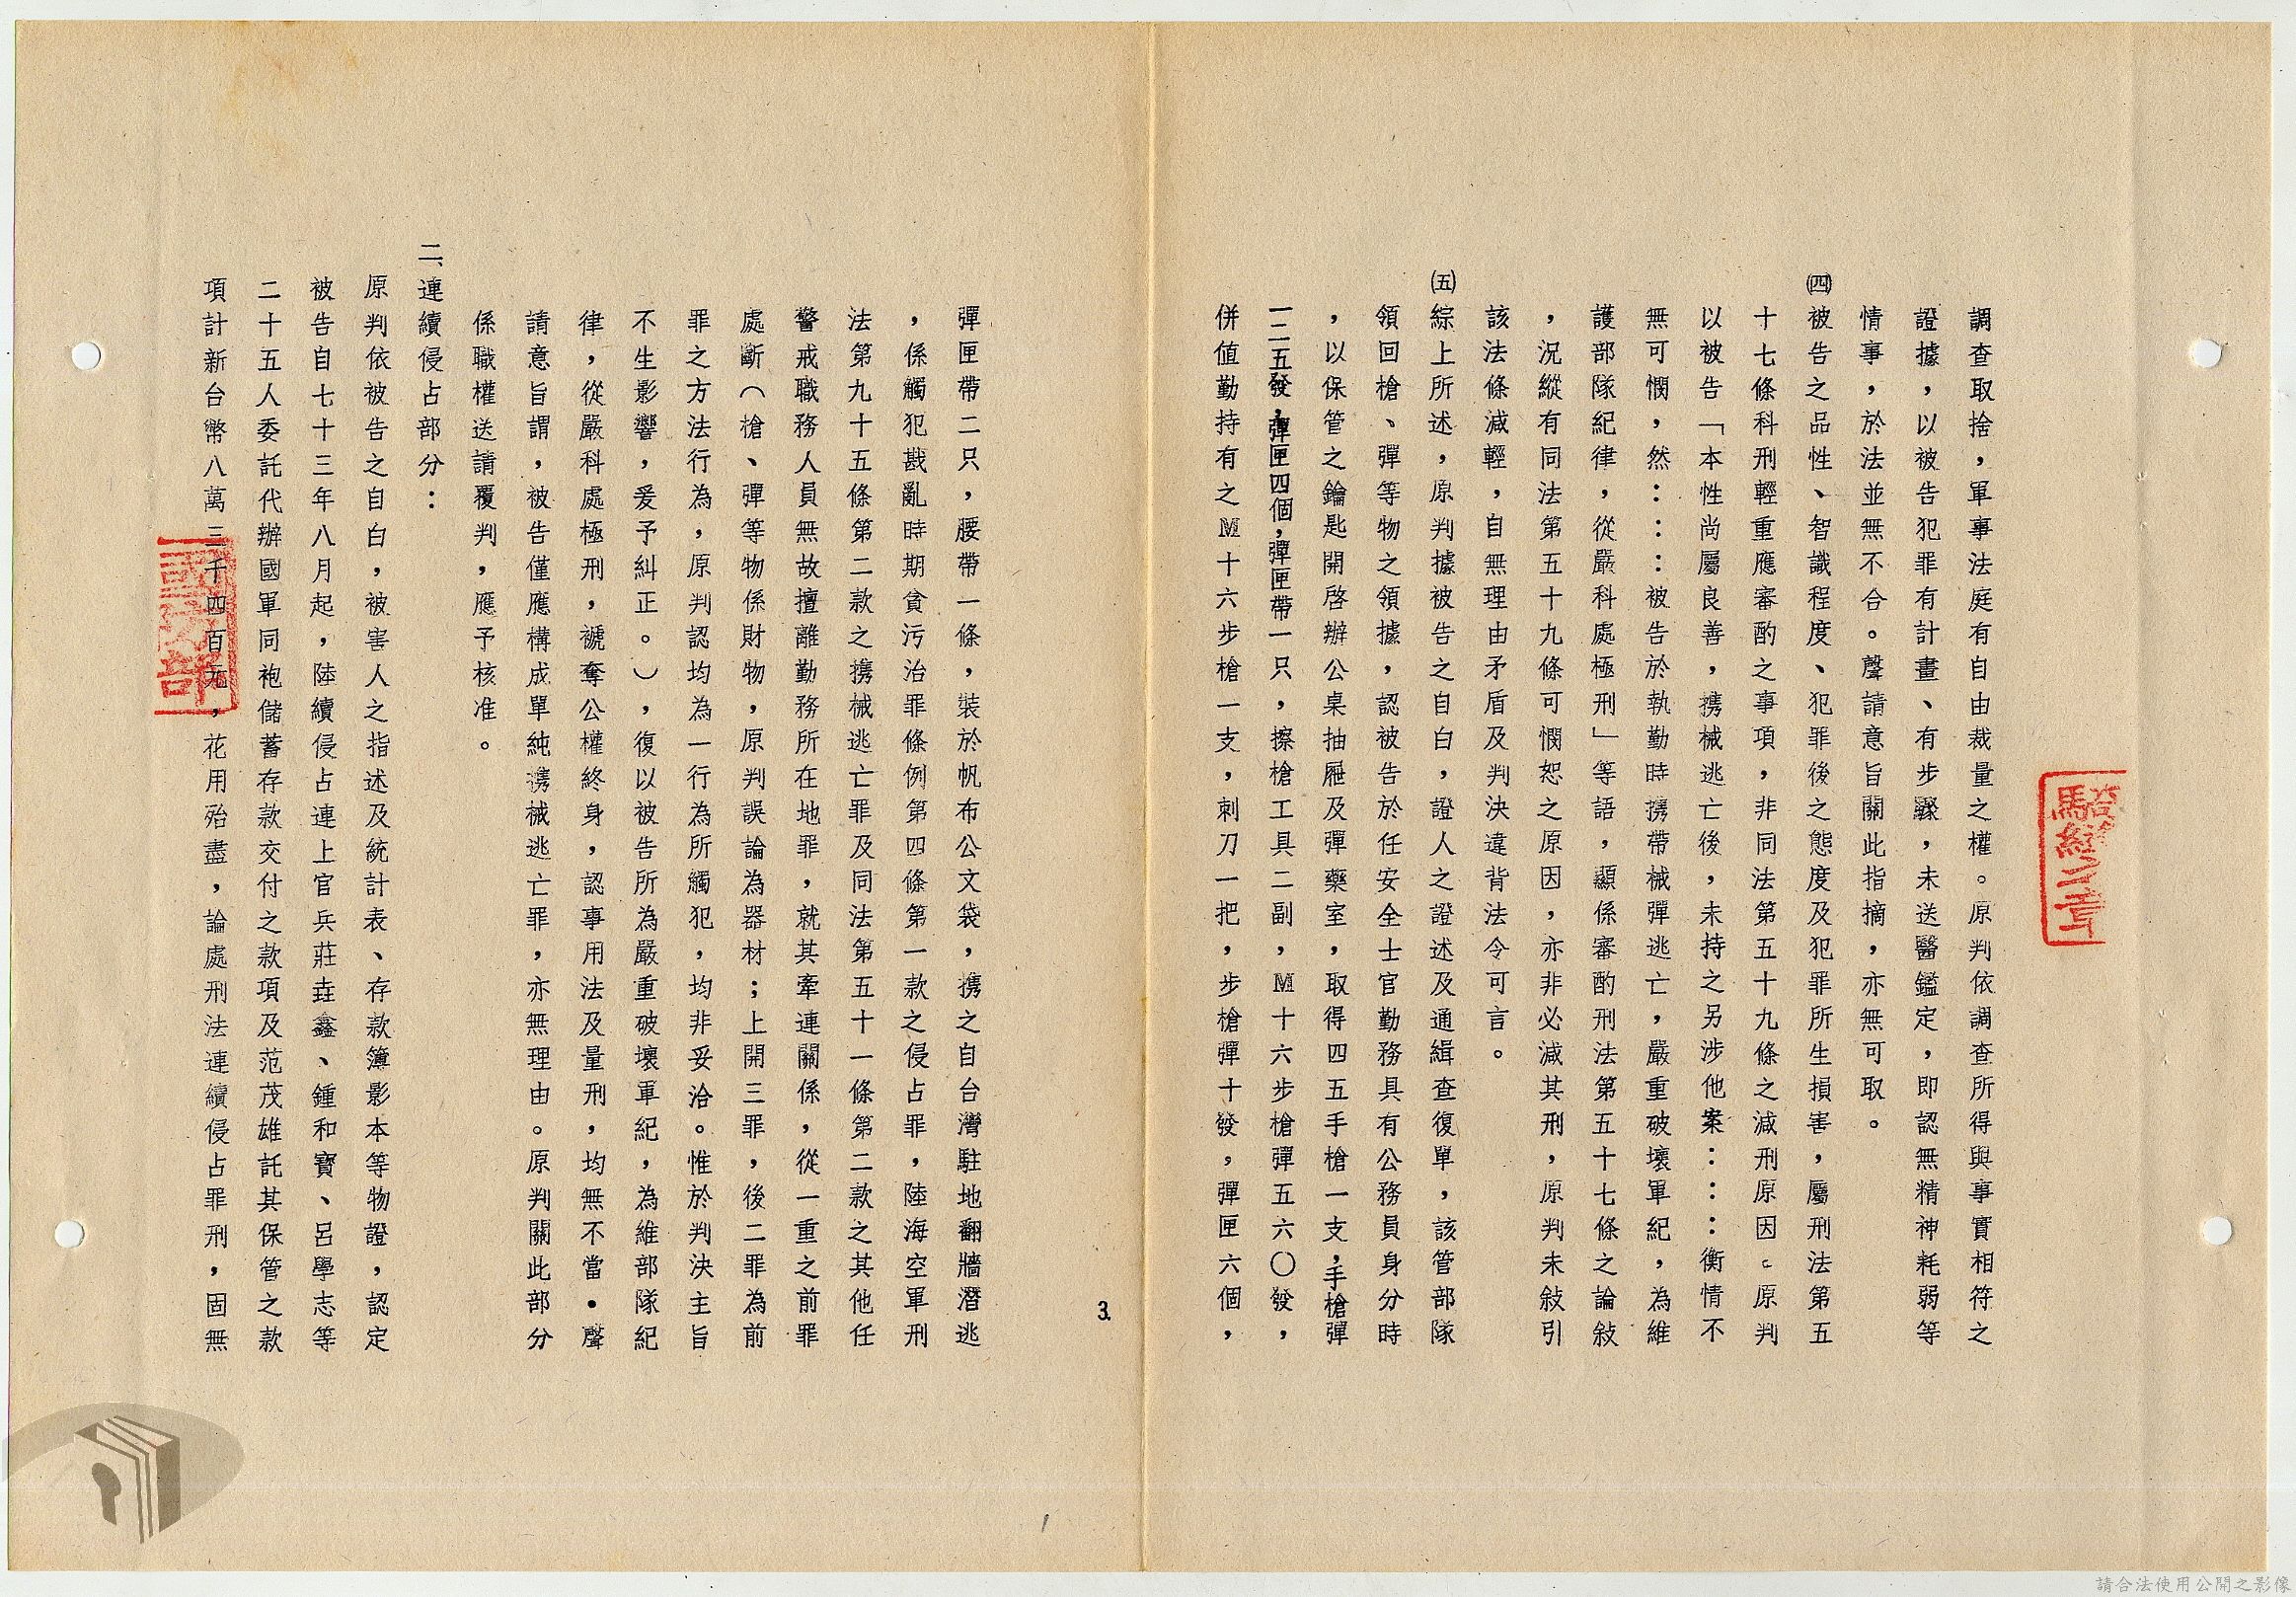 調查取捨，軍事法庭有自由裁量之權。原判依調查所得與事實相符之
證據，以被告犯罪有計畫、有步驟，未送醫鑑定，即認無精神耗弱等
情事，於法並無不合。聲請意旨關此指摘，亦無可取。
㈣被告之品性、智識程度、犯罪後之態度及犯罪所生損害，屬刑法第五
十七條科刑輕重應審酌之事項，非同法第五十九條之減刑原因。原判
以被告「本性尚屬良善，携械逃亡後，未持之另涉他案：：：衡情不
無可憫，然：：：被告於執勤時携帶械彈逃亡，嚴重破壞軍紀，為維
護部隊紀律，從嚴科處極刑」等語，顯係審酌刑法第五十七條之論敍
，況縱有同法第五十九條可憫恕之原因，亦非必減其刑，原判未敍引
該法條減輕，自無理由矛盾及判決違背法令可言。
㈤綜上所述，原判據被告之自白，證人之證述及通緝查復單，該管部隊
領回槍、彈等物之領據，認被告於任安全士官勤務具有公務員身分時
，以保管之鑰匙開啓辦公桌抽屜及彈藥室，取得四五手槍一支，手槍彈
一二五發，彈匣四個，彈匣帶一只，擦槍工具二副，M十六步槍彈五六〇發，
併值勤持有之M十六步槍一支，刺刀一把，步槍彈十發，彈匣六個，
3.
彈匣帶二只，腰帶一條，裝於帆布公文袋，携之自台灣駐地翻牆潛逃
，係觸犯戡亂時期貪污治罪條例第四條第一款之侵占罪，陸海空軍刑
法第九十五條第二款之携械逃亡罪及同法第五十一條第二款之其他任
警戒職務人員無故擅離勤務所在地罪，就其牽連關係，從一重之前罪
處斷（槍、彈等物係財物，原判誤論為器材；上開三罪，後二罪為前
罪之方法行為，原判認均為一行為所觸犯，均非妥洽。惟於判決主旨
不生影響，爰予糾正。），復以被告所為嚴重破壞軍紀，為維部隊紀
律，從嚴科處極刑，褫奪公權終身，認事用法及量刑，均無不當・聲
請意旨謂，被告僅應構成單純携械逃亡罪，亦無理由。原判關此部分
係職權送請覆判，應予核准。
二、連續侵占部分：
原判依被告之自白，被害人之指述及統計表、存款簿影本等物證，認定
被告自七十三年八月起，陸續侵占連上官兵莊垚鑫、鍾和寶、呂學志等
二十五人委託代辦國軍同袍儲蓄存款交付之款項及范茂雄託其保管之款
項計新台幣八萬三千四百元，花用殆盡，論處刑法連續侵占罪刑，固無
國防部
騎縫之章
請合法使用公開之影像